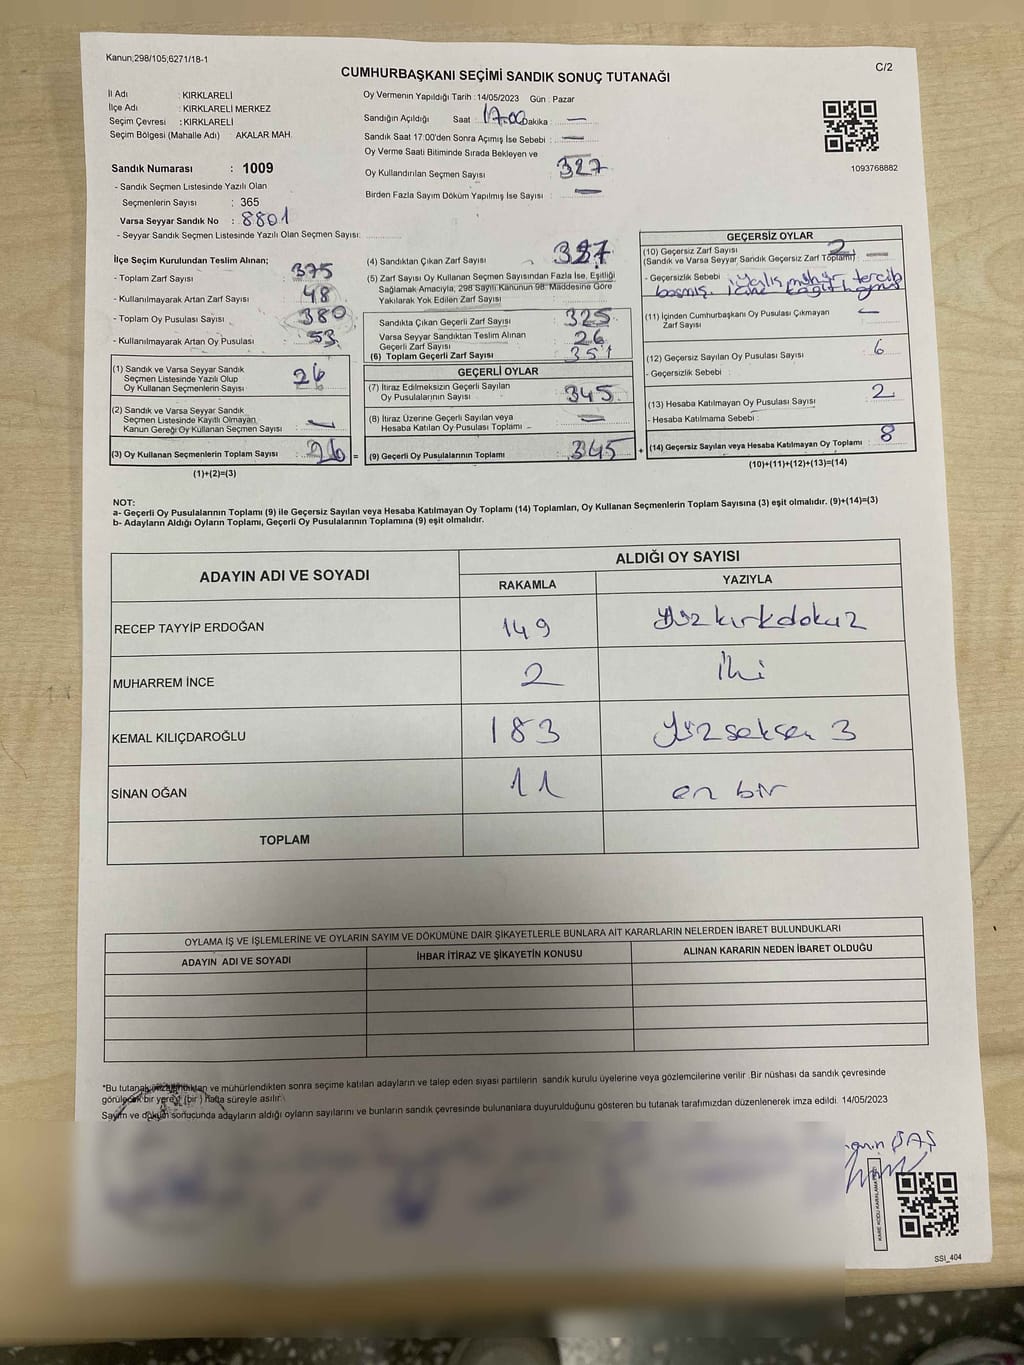 Kanun;298/105;6271/18-1
C/2
CUMHURBAŞKANI SEÇİMİ SANDIK SONUÇ TUTANAĞI
İl Adı : KIRKLARELİ
İlçe Adı : KIRKLARELİ MERKEZ
Seçim Çevresi : KIRKLARELİ
Seçim Bölgesi (Mahalle Adı) : AKALAR MAH.
Sandık Numarası : 1009
- Sandık Seçmen Listesinde Yazılı Olan
Seçmenlerin Sayısı : 365
Varsa Seyyar Sandık No : 8801
- Seyyar Sandık Seçmen Listesinde Yazılı Olan Seçmen Sayısı:
Oy Vermenin Yapıldığı Tarih :14/05/2023 Gün : Pazar
Sandığın Açıldığı Saat : 17.00 Dakika : —
Sandık Saat 17:00'den Sonra Açımış İse Sebebi : —
Oy Verme Saati Bitiminde Sırada Bekleyen ve
Oy Kullandırılan Seçmen Sayısı : 327
Birden Fazla Sayım Döküm Yapılmış İse Sayısı : —
1093768882
İlçe Seçim Kurulundan Teslim Alınan;
- Toplam Zarf Sayısı : 375
- Kullanılmayarak Artan Zarf Sayısı : 48
- Toplam Oy Pusulası Sayısı : 380
- Kullanılmayarak Artan Oy Pusulası : 53
(1) Sandık ve Varsa Seyyar Sandık
Seçmen Listesinde Yazılı Olup
Oy Kullanan Seçmenlerin Sayısı : 26
(2) Sandık ve Varsa Seyyar Sandık
Seçmen Listesinde Kayıtlı Olmayan
Kanun Gereği Oy Kullanan Seçmen Sayısı : —
(3) Oy Kullanan Seçmenlerin Toplam Sayısı : 26 =
(1)+(2)=(3)
(4) Sandıktan Çıkan Zarf Sayısı : 327
(5) Zarf Sayısı Oy Kullanan Seçmen Sayısından Fazla İse, Eşitliği
Sağlamak Amacıyla, 298 Sayılı Kanunun 98. Maddesine Göre
Yakılarak Yok Edilen Zarf Sayısı :
Sandıkta Çıkan Geçerli Zarf Sayısı : 325
Varsa Seyyar Sandıktan Teslim Alınan
Geçerli Zarf Sayısı : 26
(6) Toplam Geçerli Zarf Sayısı : 351
GEÇERLİ OYLAR
(7) İtiraz Edilmeksizin Geçerli Sayılan
Oy Pusulalarının Sayısı : 345
(8) İtiraz Üzerine Geçerli Sayılan veya
Hesaba Katılan Oy Pusulası Toplamı : —
(9) Geçerli Oy Pusulalarının Toplamı : 345 +
GEÇERSİZ OYLAR
(10) Geçersiz Zarf Sayısı : 2
(Sandık ve Varsa Seyyar Sandık Geçersiz Zarf Toplamı) —
- Geçersizlik Sebebi : mühür tercih
basmış.
(11) İçinden Cumhurbaşkanı Oy Pusulası Çıkmayan —
Zarf Sayısı
(12) Geçersiz Sayılan Oy Pusulası Sayısı : 6
- Geçersizlik Sebebi :
(13) Hesaba Katılmayan Oy Pusulası Sayısı : 2
- Hesaba Katılmama Sebebi :
(14) Geçersiz Sayılan veya Hesaba Katılmayan Oy Toplamı : 8
(10)+(11)+(12)+(13)=(14)
NOT:
a- Geçerli Oy Pusulalarının Toplamı (9) ile Geçersiz Sayılan veya Hesaba Katılmayan Oy Toplamı (14) Toplamları, Oy Kullanan Seçmenlerin Toplam Sayısına (3) eşit olmalıdır. (9)+(14)=(3)
b- Adayların Aldığı Oyların Toplamı, Geçerli Oy Pusulalarının Toplamına (9) eşit olmalıdır.
ADAYIN ADI VE SOYADI
ALDIĞI OY SAYISI
RAKAMLA YAZIYLA
RECEP TAYYİP ERDOĞAN 149 yüzkırkdokuz
MUHARREM İNCE 2 İki
KEMAL KILIÇDAROĞLU 183 yüzseksen 3
SİNAN OĞAN 11 on bir
TOPLAM
OYLAMA İŞ VE İŞLEMLERİNE VE OYLARIN SAYIM VE DÖKÜMÜNE DAİR ŞİKAYETLERLE BUNLARA AİT KARARLARIN NELERDEN İBARET BULUNDUKLARI
ADAYIN ADI VE SOYADI İHBAR İTİRAZ VE ŞİKAYETİN KONUSU ALINAN KARARIN NEDEN İBARET OLDUĞU
*Bu tutanak imzalandıktan ve mühürlendikten sonra seçime katılan adayların ve talep eden siyasi partilerin sandık kurulu üyelerine veya gözlemcilerine verilir .Bir nüshası da sandık çevresinde
görülecek bir yere 1 (bir ) hafta süreyle asılır.
Sayım ve döküm sonucunda adayların aldığı oyların sayılarını ve bunların sandık çevresinde bulunanlara duyurulduğunu gösteren bu tutanak tarafımızdan düzenlenerek imza edildi. 14/05/2023
BAŞ
SSI_404